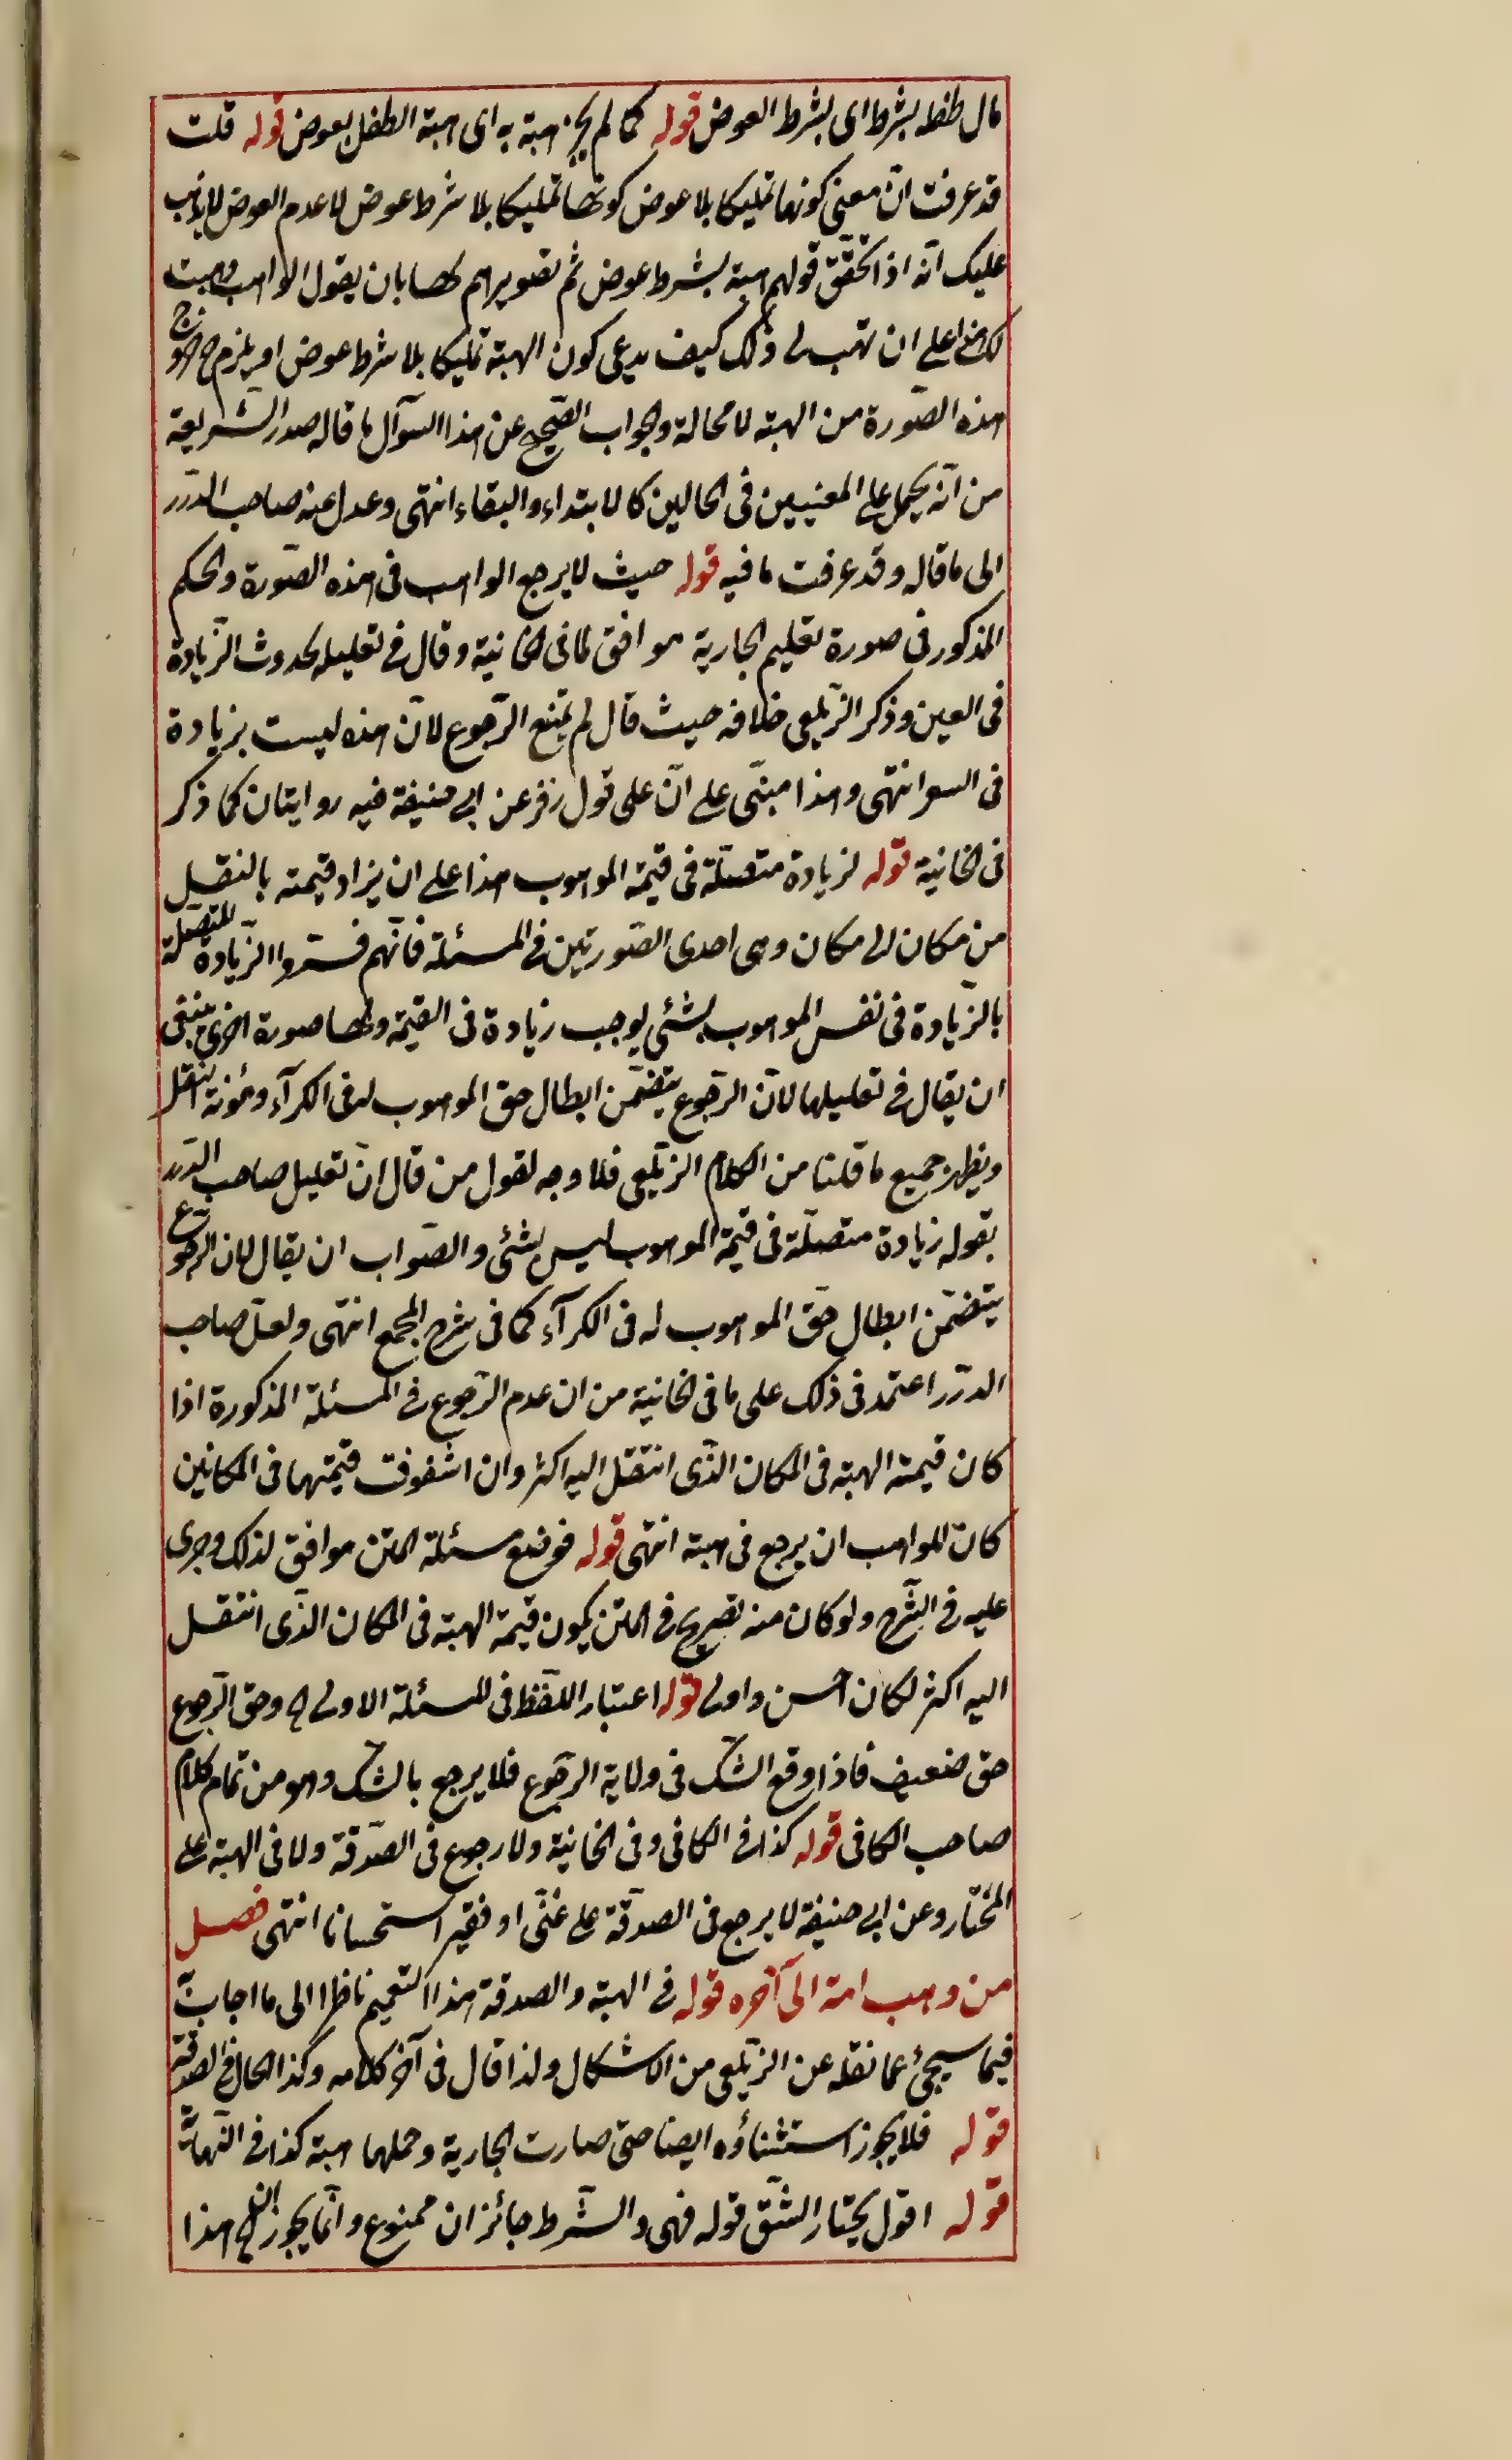 مال طفله بشرط اى بشرط العوض قوله كما لم يجز هبته به اى هبة الطفل بعوض قوله قلت
قد عرفت انّ معنى كونها تمليكا بلا عوض كونها تمليكا بلا شرط عوض لا عدم العوض لا يذهب
عليك انّه اذا تحقّق قولهم هبة بشرط عوض ثم تصويرهم لها بان يقول الواهب وهبت
لك هذا على ان تهب لى ذلك كيف يدعى كون الهبة تمليكا بلا شرط عوض او يلزم ح خروج
هذه الصّورة من الهبة لا محالة والجواب الصّحيح عن هذا السوآل ما قاله صدر الشّريعة
من انّه يحمل على المعنيين فى الحالين كالابتداء والبقاء انتهى وعدل عنه صاحب الدّرر
الى ما قاله وقد عرفت ما فيه قوله حيث لا يرجع الواهب فى هذه الصّورة والحكم
المذكور فى صورة تعليم الجارية موافق لما فى الخانية وقال فى تعليله لحدوث الزّيادة
فى العين وذكر الزّيلعى خلافه حيث قال لم يمنع الرّجوع لانّ هذه ليست بزيادة
فى السعر انتهى وهذا مبنّى على انّ على قول زفر عن ابى حنيفة فيه روايتان كما ذكر
فى الخانية قوله لزيادة متصلّة فى قيمة الموهوب هذا على ان يزاد قيمته بالنقل
من مكان الى مكان وهى احدى الصّورتين فى المسئلة فانّهم فسّروا الزّيادة المتصلة
بالزّيادة فى نفس الموهوب بشئى يوجب زيادة فى القيمة ولها صورة اخرى ينبغى
ان يقال فى تعليلها لانّ الرّجوع يتضمّن ابطال حق الموهوب له فى الكرآء ومؤنة النقل
ويظهر جميع ما قلنا من الكلام الزّيلعى فلا وجه لقول من قال انّ تعليل صاحب الدّرر
بقوله زيادة متصلّة فى قيمة الموهوب ليس بشئى والصّواب ان يقال لان الرّجوع
يتضمّن ابطال حقّ الموهوب له فى الكرآء كما فى شرح المجمع انتهى ولعلّ صاحب
الدرّر اعتمد فى ذلك على ما فى الخانية من ان عدم الرّجوع فى المسئلة المذكورة اذا
كان قيمة الهبة فى المكان الّذى انتقل اليه اكثر وان استوت قيمتهما فى المكانين
كان للواهب ان يرجع فى هبته انتهى قوله فوضع مسئلة المتن موافق لذلك وجرى
عليه فى الشّرح ولو كان منه تصريح فى المتن بكون قيمة الهبة فى المكان الّذى انتقل
اليه اكثر لكان احسن واولى قوله اعتبار اللّفظ فى المسئلة الاولى ح وحق الرّجوع
حق ضعيف فاذا وقع الشّك فى ولاية الرّجوع فلا يرجع بالشّك وهو من تمام كلام
صاحب الكافى قوله كذا فى الكافى وفى الخانية ولا رجوع فى الصّدقة ولا فى الهبة على
المختار وعن ابى حنيفة لا يرجع فى الصدقّة على غنّى او فقير استحسانا انتهى فصل
من وهب امة الى آخره قوله فى الهبة والصدقة هذا التعميم ناظر الى ما اجاب
فيما سيجئ عما نقله عن الزّيلعى من الاشكال ولذا قال فى آخر كلامه وكذا الحال فى الصدقة
قوله فلا يجوز استثناؤه ايضا حتى صارت الجارية وحملها هبة كذا فى النّهاية
قوله اقول يختار الشّق قوله فهى والشّرط جائزان ممنوع وانّما يجوز هذا